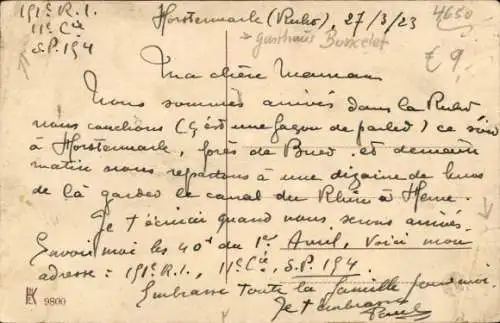 191e R.I.
11e Cie
S.P. 194
Horstermark (Ruhr), 27/3/23
4650
> Gasthaus Buscelet
€ 9,
Ma chère Maman
Nous sommes arrivés dans la Ruhr
nous couchons (Ç'est une façon de parler) ce soir
à Horstermark, près de Buer et demain
matin nous repartons à une dizaine de kms
de là garder le canal du Rhin à Herne.
Je t'écrirai quand nous serons arrivés.
Envoie moi les 40f du 1er Avril, voici mon
adresse : 191e R.I., 11e Cie, S.P. 194.
Embrasse toute la famille pour moi.
Je t'embrasse
Paul
EK 9800